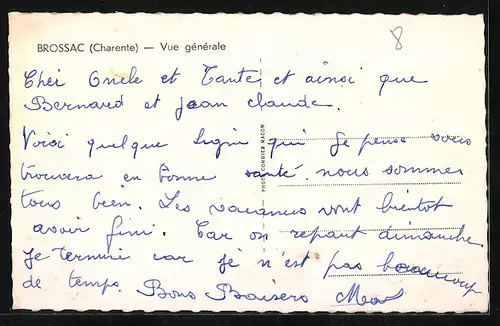 8
BROSSAC (Charente) — Vue générale
Cher Oncle et Tante et ainsi que
Bernard et Jean claude.
Voici quelque ligni qui je pense vous
trouvera en bonne santé. nous sommes
tous bien. Les vacances vont bientot
avoir fini. Car on repart dimanche
Je termine car je n'est pas beaucoup
de temps. Bons Baisers
PHOTO COMBIER MACON